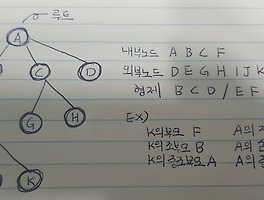 루트
A
C
D
G
H
K
내부노드 A B C F
외부노드 D E G H I J K
형제 B C D / E F
EX)
K의 부모 F A의 자
K의 조부모 B A의 손
K의 증조부모 A A의 증